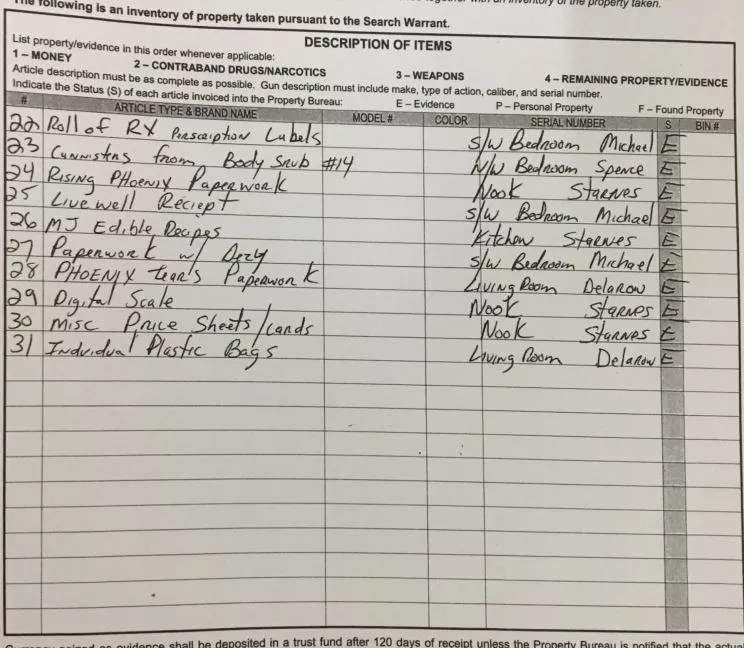 The following is an inventory of property taken pursuant to the Search Warrant.
inventory of the property taken.
DESCRIPTION OF ITEMS
List property/evidence in this order whenever applicable:
1 – MONEY 2 – CONTRABAND DRUGS/NARCOTICS 3 – WEAPONS 4 – REMAINING PROPERTY/EVIDENCE
Article description must be as complete as possible. Gun description must include make, type of action, caliber, and serial number.
Indicate the Status (S) of each article invoiced into the Property Bureau: E – Evidence P – Personal Property F – Found Property
# ARTICLE TYPE & BRAND NAME MODEL # COLOR SERIAL NUMBER S BIN #
22 Roll of RX Perscription Labels S/W Bedroom Michael E
23 Cannisters from Body Snub #14 N/W Bedroom Spence E
24 Rising PHoenix Paperwork Nook Starnes E
25 Livewell Reciept S/W Bedroom Michael E
26 MJ Edible Recipes Kitchen Starnes E
27 Paperwork w/ S/W Bedroom Michael E
28 PHOENIX tear's Paperwork Living Room Delarow E
29 Digital Scale Nook Starnes E
30 Misc Price Sheets/cards Nook Starnes E
31 Individual Plastic Bags Living Room Delarow E
evidence shall be deposited in a trust fund after 120 days of receipt unless the Property Bureau is notified that the actual